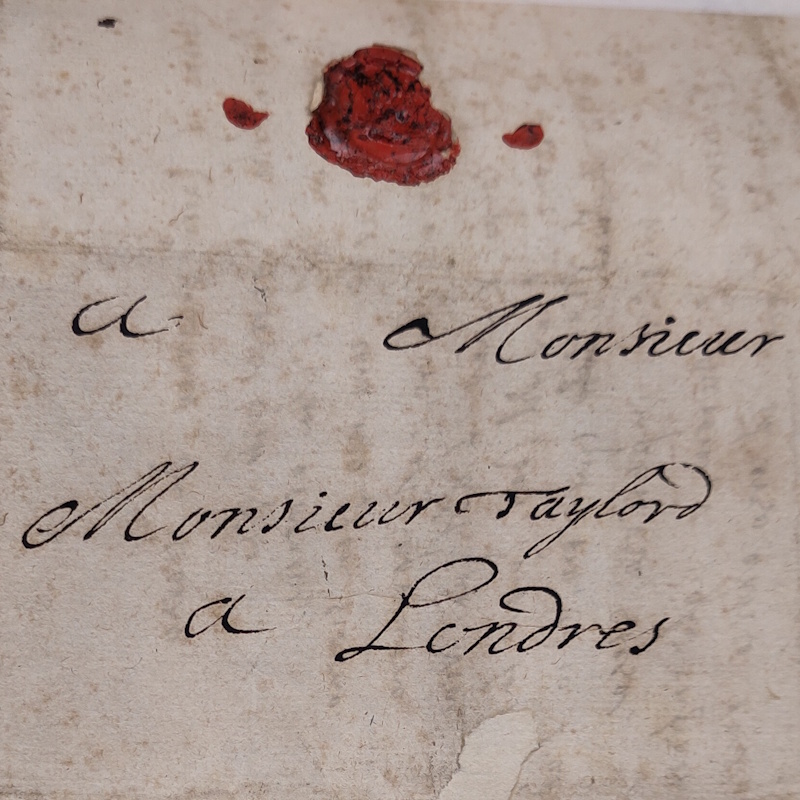 a Monsieur
Monsieur Taylord
a Londres